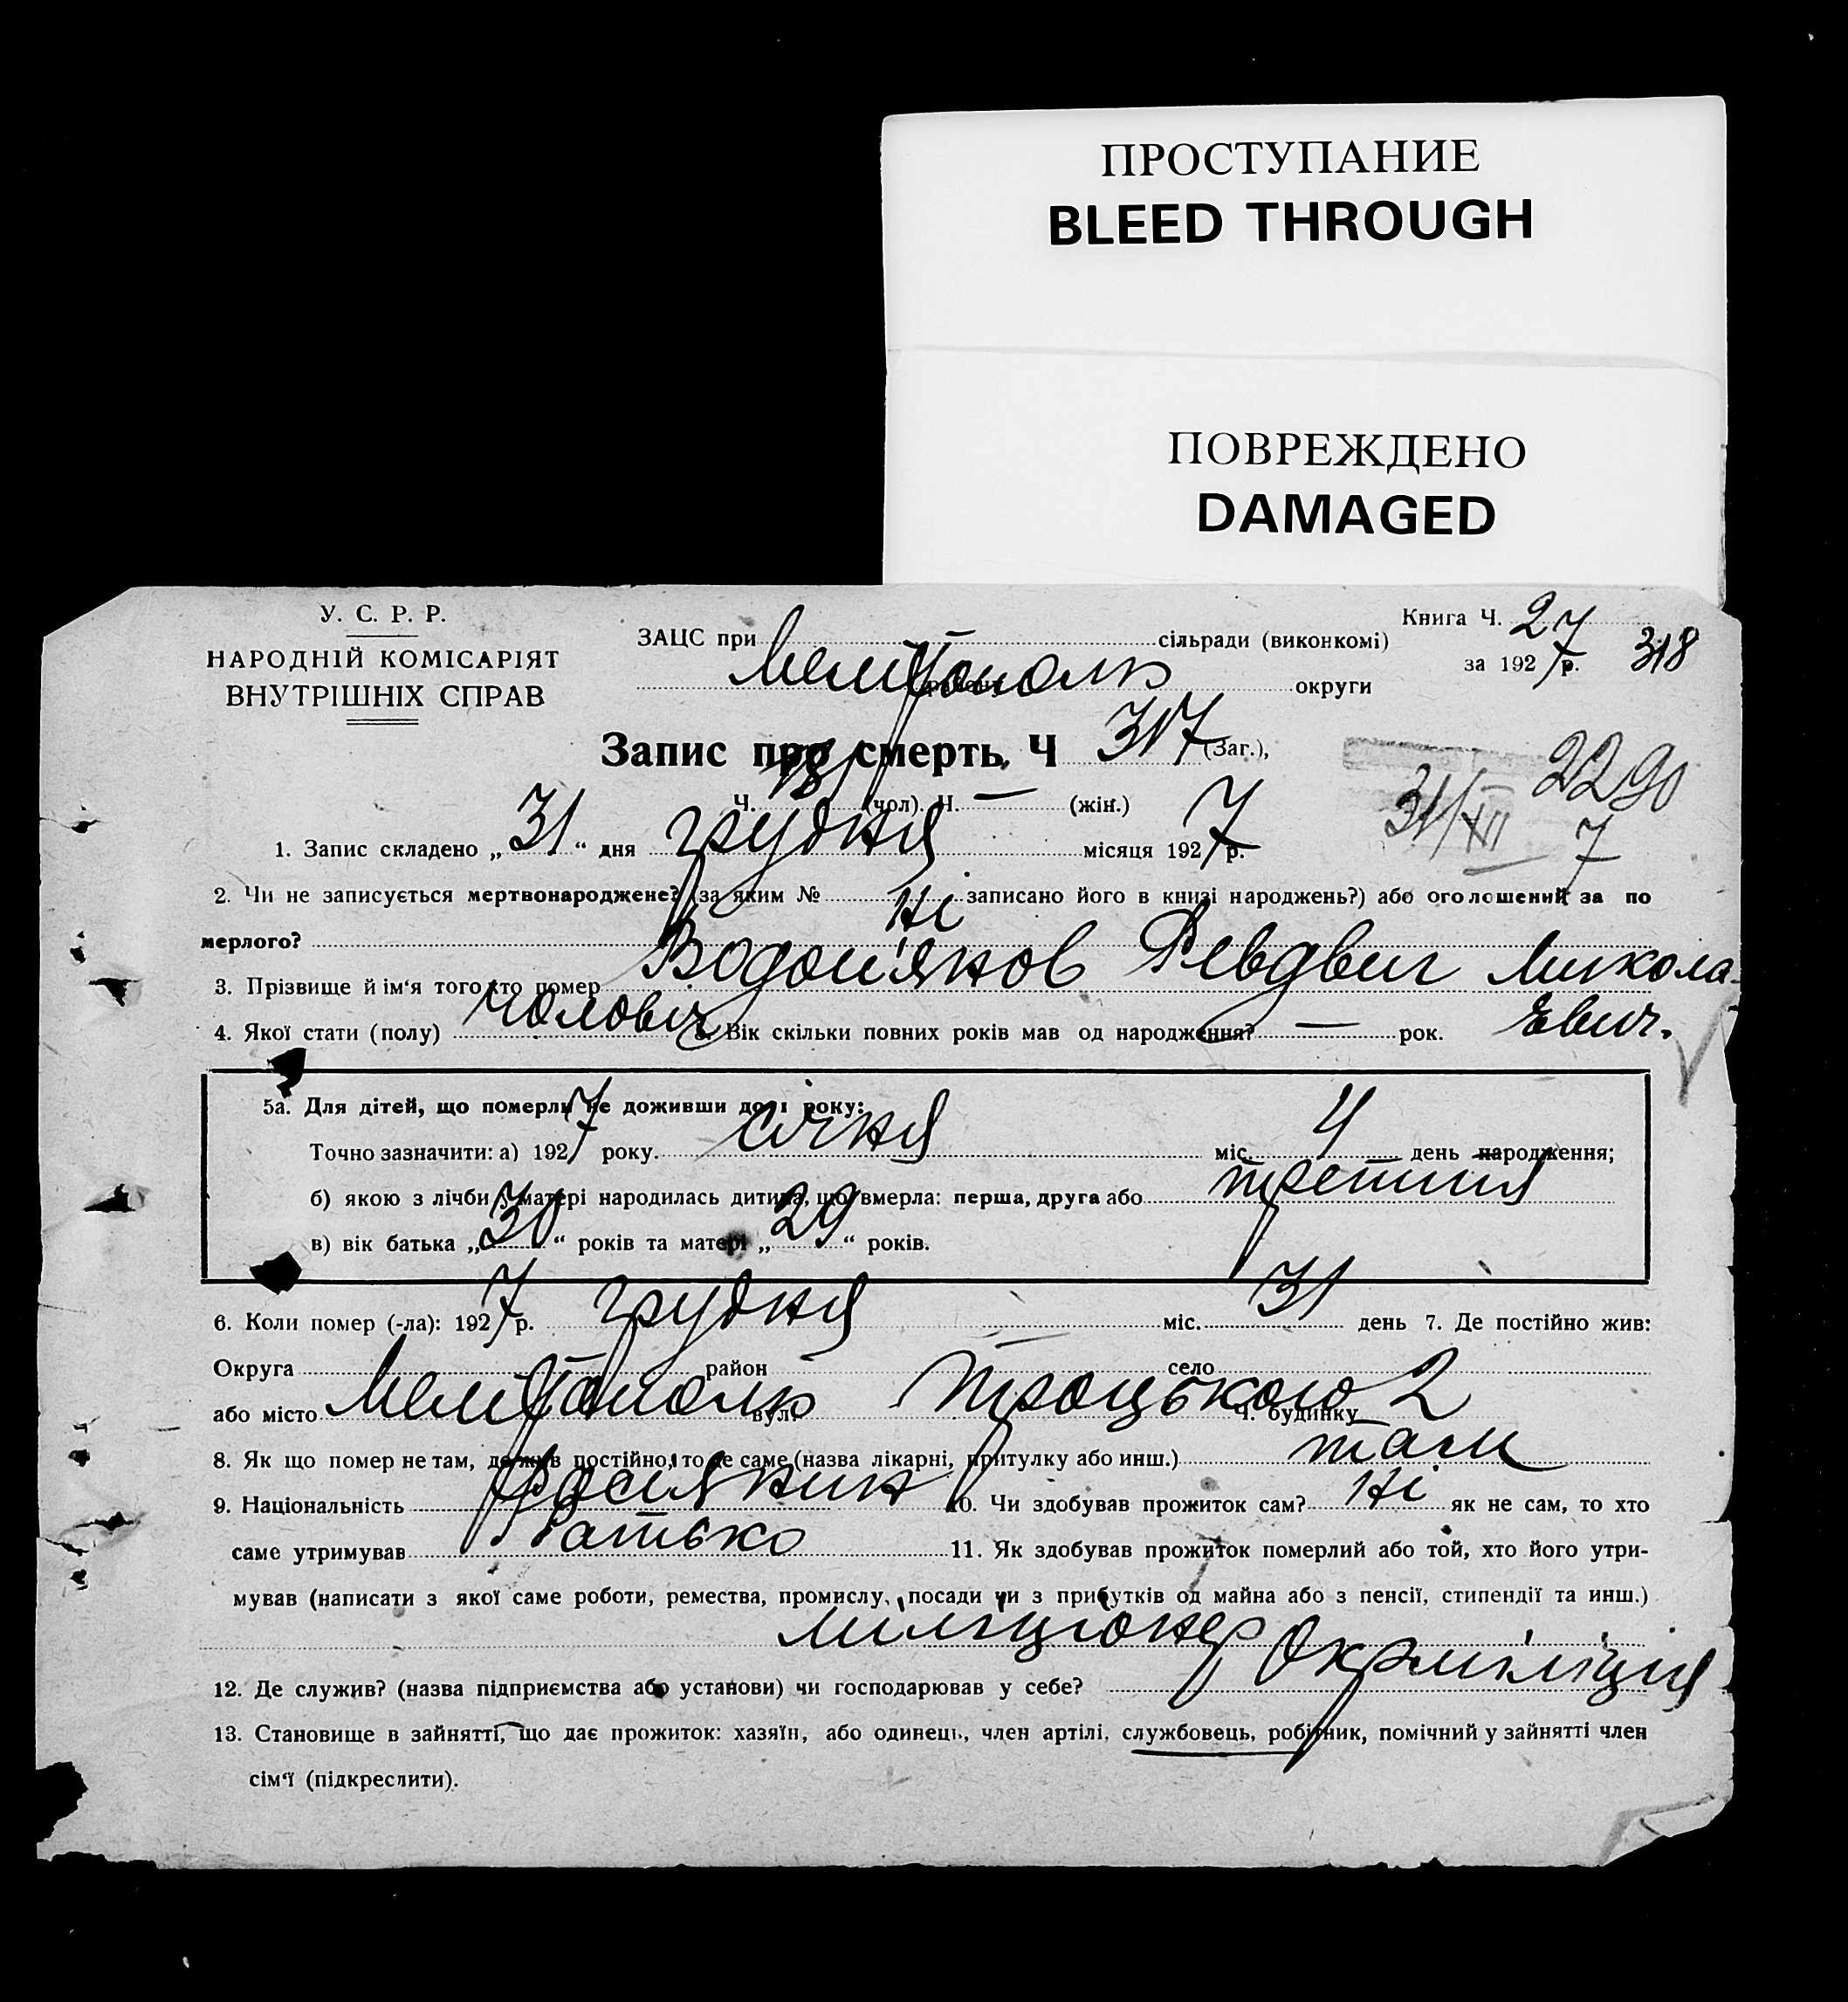 ПРОСТУПАНИЕ
BLEED THROUGH
ПОВРЕЖДЕНО
DAMAGED
У. С. Р. Р.
НАРОДНІЙ КОМІСАРІЯТ
ВНУТРІШНІХ СПРАВ
ЗАЦС при сільради (виконкомі)
Мелітополь району округи
Книга Ч. 27
за 1927 р. 318
Запис про смерть, Ч 317 (Заг.),
Ч. 181 (чол). Ч. — (жін.)
2290
31/XII 7
1. Запис складено „31“ дня грудня місяця 1927 р.
2. Чи не записується мертвонароджене? (за яким № записано його в книзі народжень?) або оголошений за по
мерлого? Ні
3. Прізвище й ім'я того хто помер Водоп'янов Микола
євич.
4. Якої стати (полу) чоловіч 5. Вік скільки повних років мав од народження? — рок.
5а. Для дітей, що померли не доживши до 1 року:
Точно зазначити: а) 1927 року. січня міс. 4 день народження;
б) якою з лічби у матері народилась дитина, що вмерла: перша, друга або третиня
в) вік батька „30“ років та матері „29“ років.
6. Коли помер (-ла): 1927 р. грудня міс. 31 день 7. Де постійно жив:
Округа район — село
або місто Мелітополь вул. Троцького ч. будинку 2
8. Як що помер не там, де жив постійно, то де саме (назва лікарні, притулку або инш.) там
9. Національність росіянин 10. Чи здобував прожиток сам? Ні як не сам, то хто
саме утримував батько 11. Як здобував прожиток померлий або той, хто його утри-
мував (написати з якої саме роботи, ремества, промислу, посади чи з прибутків од майна або з пенсії, стипендії та инш.)
міліціонер
12. Де служив? (назва підприємства або установи) чи господарював у себе? Окрміліція
13. Становище в зайнятті, що дає прожиток: хазяїн, або одинець, член артілі, службовець, робітник, помічний у зайнятті член
сім'ї (підкреслити).